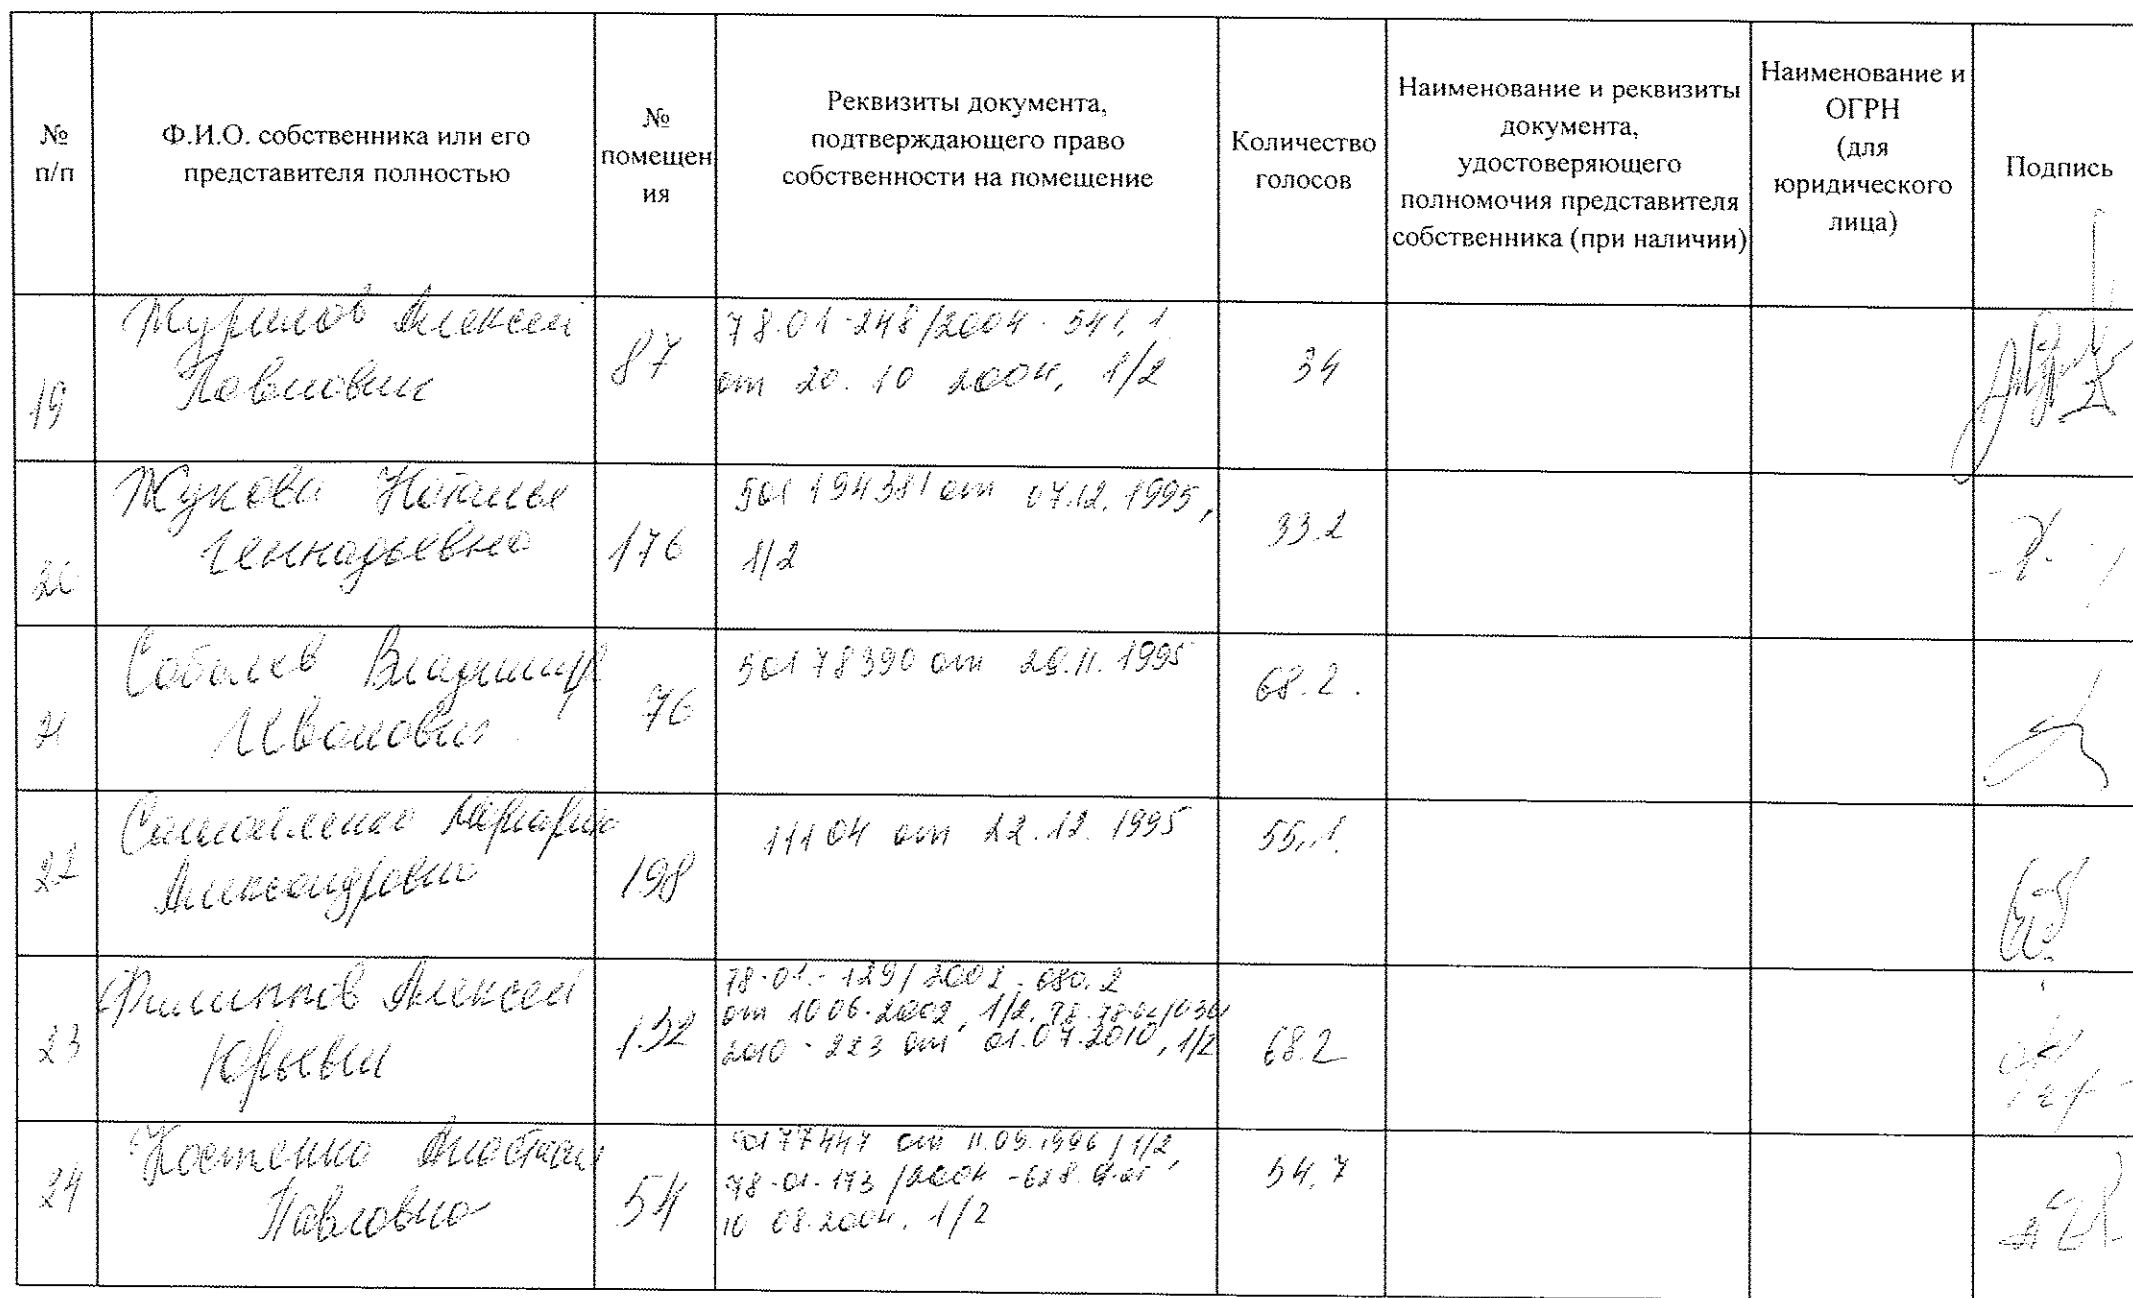 №
п/п
Ф.И.О. собственника или его
представителя полностью
№
помещен
ия
Реквизиты документа,
подтверждающего право
собственности на помещение
Количество
голосов
Наименование и реквизиты
документа,
удостоверяющего
полномочия представителя
собственника (при наличии)
Наименование и
ОГРН
(для
юридического
лица)
Подпись
19
Журилов Алексей
Павлович
87
78.01-248/2004-541.1
от 20.10 2004, 1/2
34
20
Жукова Наталья
Геннадьевна
176
501 194381 от 07.12.1995,
1/2
33.2
21
Соболев Владимир
Иванович
76
50178390 от 29.11.1995
68.2.
22
Александровна
198
11104 от 22.12.1995
55,1.
23
Филиппов Алексей
Юрьевич
132
78-01-129/2002-680.2
от 10 06.2002, 1/2,
2010-223 от 01.07.2010, 1/2
68.2
24
Костенко
Павловна
54
50177447 от 11.09.1996, 1/2,
78-01-173/2004-628.
10 08.2004. 1/2
54,7